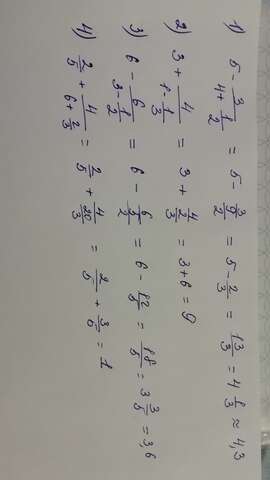 1) 5 - 3/(4 + 1/2) = 5 - 3/(9/2) = 5 - 2/3 = 13/3 = 4 1/3 ≈ 4,3
2) 3 + 4/(1 - 1/3) = 3 + 4/(2/3) = 3 + 6 = 9
3) 6 - 6/(3 - 1/2) = 6 - 6/(5/2) = 6 - 12/5 = 18/5 = 3 3/5 = 3,6
4) 2/5 + 4/(6 + 2/3) = 2/5 + 4/(20/3) = 2/5 + 3/5 = 1